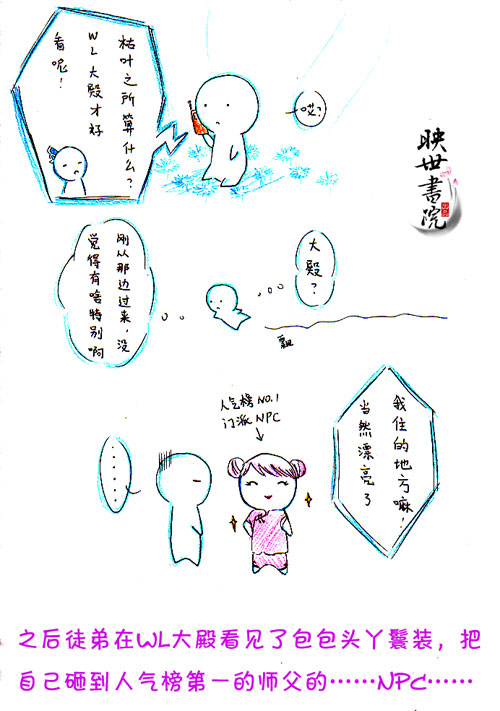 枯叶之所算什么？
WL大殿才好
看呢！
哎？
映世書院
大殿？
刚从那边过来，没
觉得有啥特别啊
飘
人气榜NO.1
门派NPC
我住的地方嘛！
当然漂亮了
······
之后徒弟在WL大殿看见了包包头丫鬟装，把
自己砸到人气榜第一的师父的……NPC……